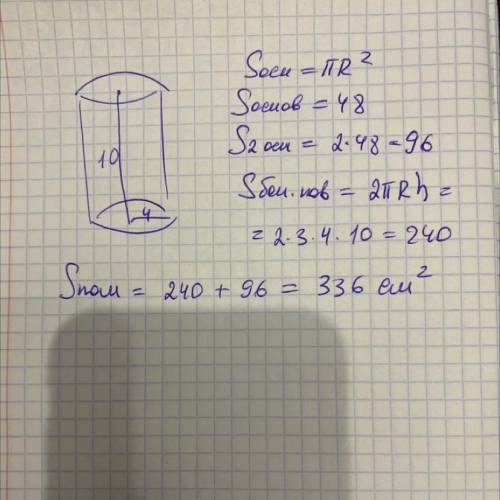 Sосн = πR²
Sоснов = 48
S2 осн = 2·48=96
10
Sбок.пов = 2πRh =
4
= 2·3·4·10 = 240
Sпол = 240 + 96 = 336 см²